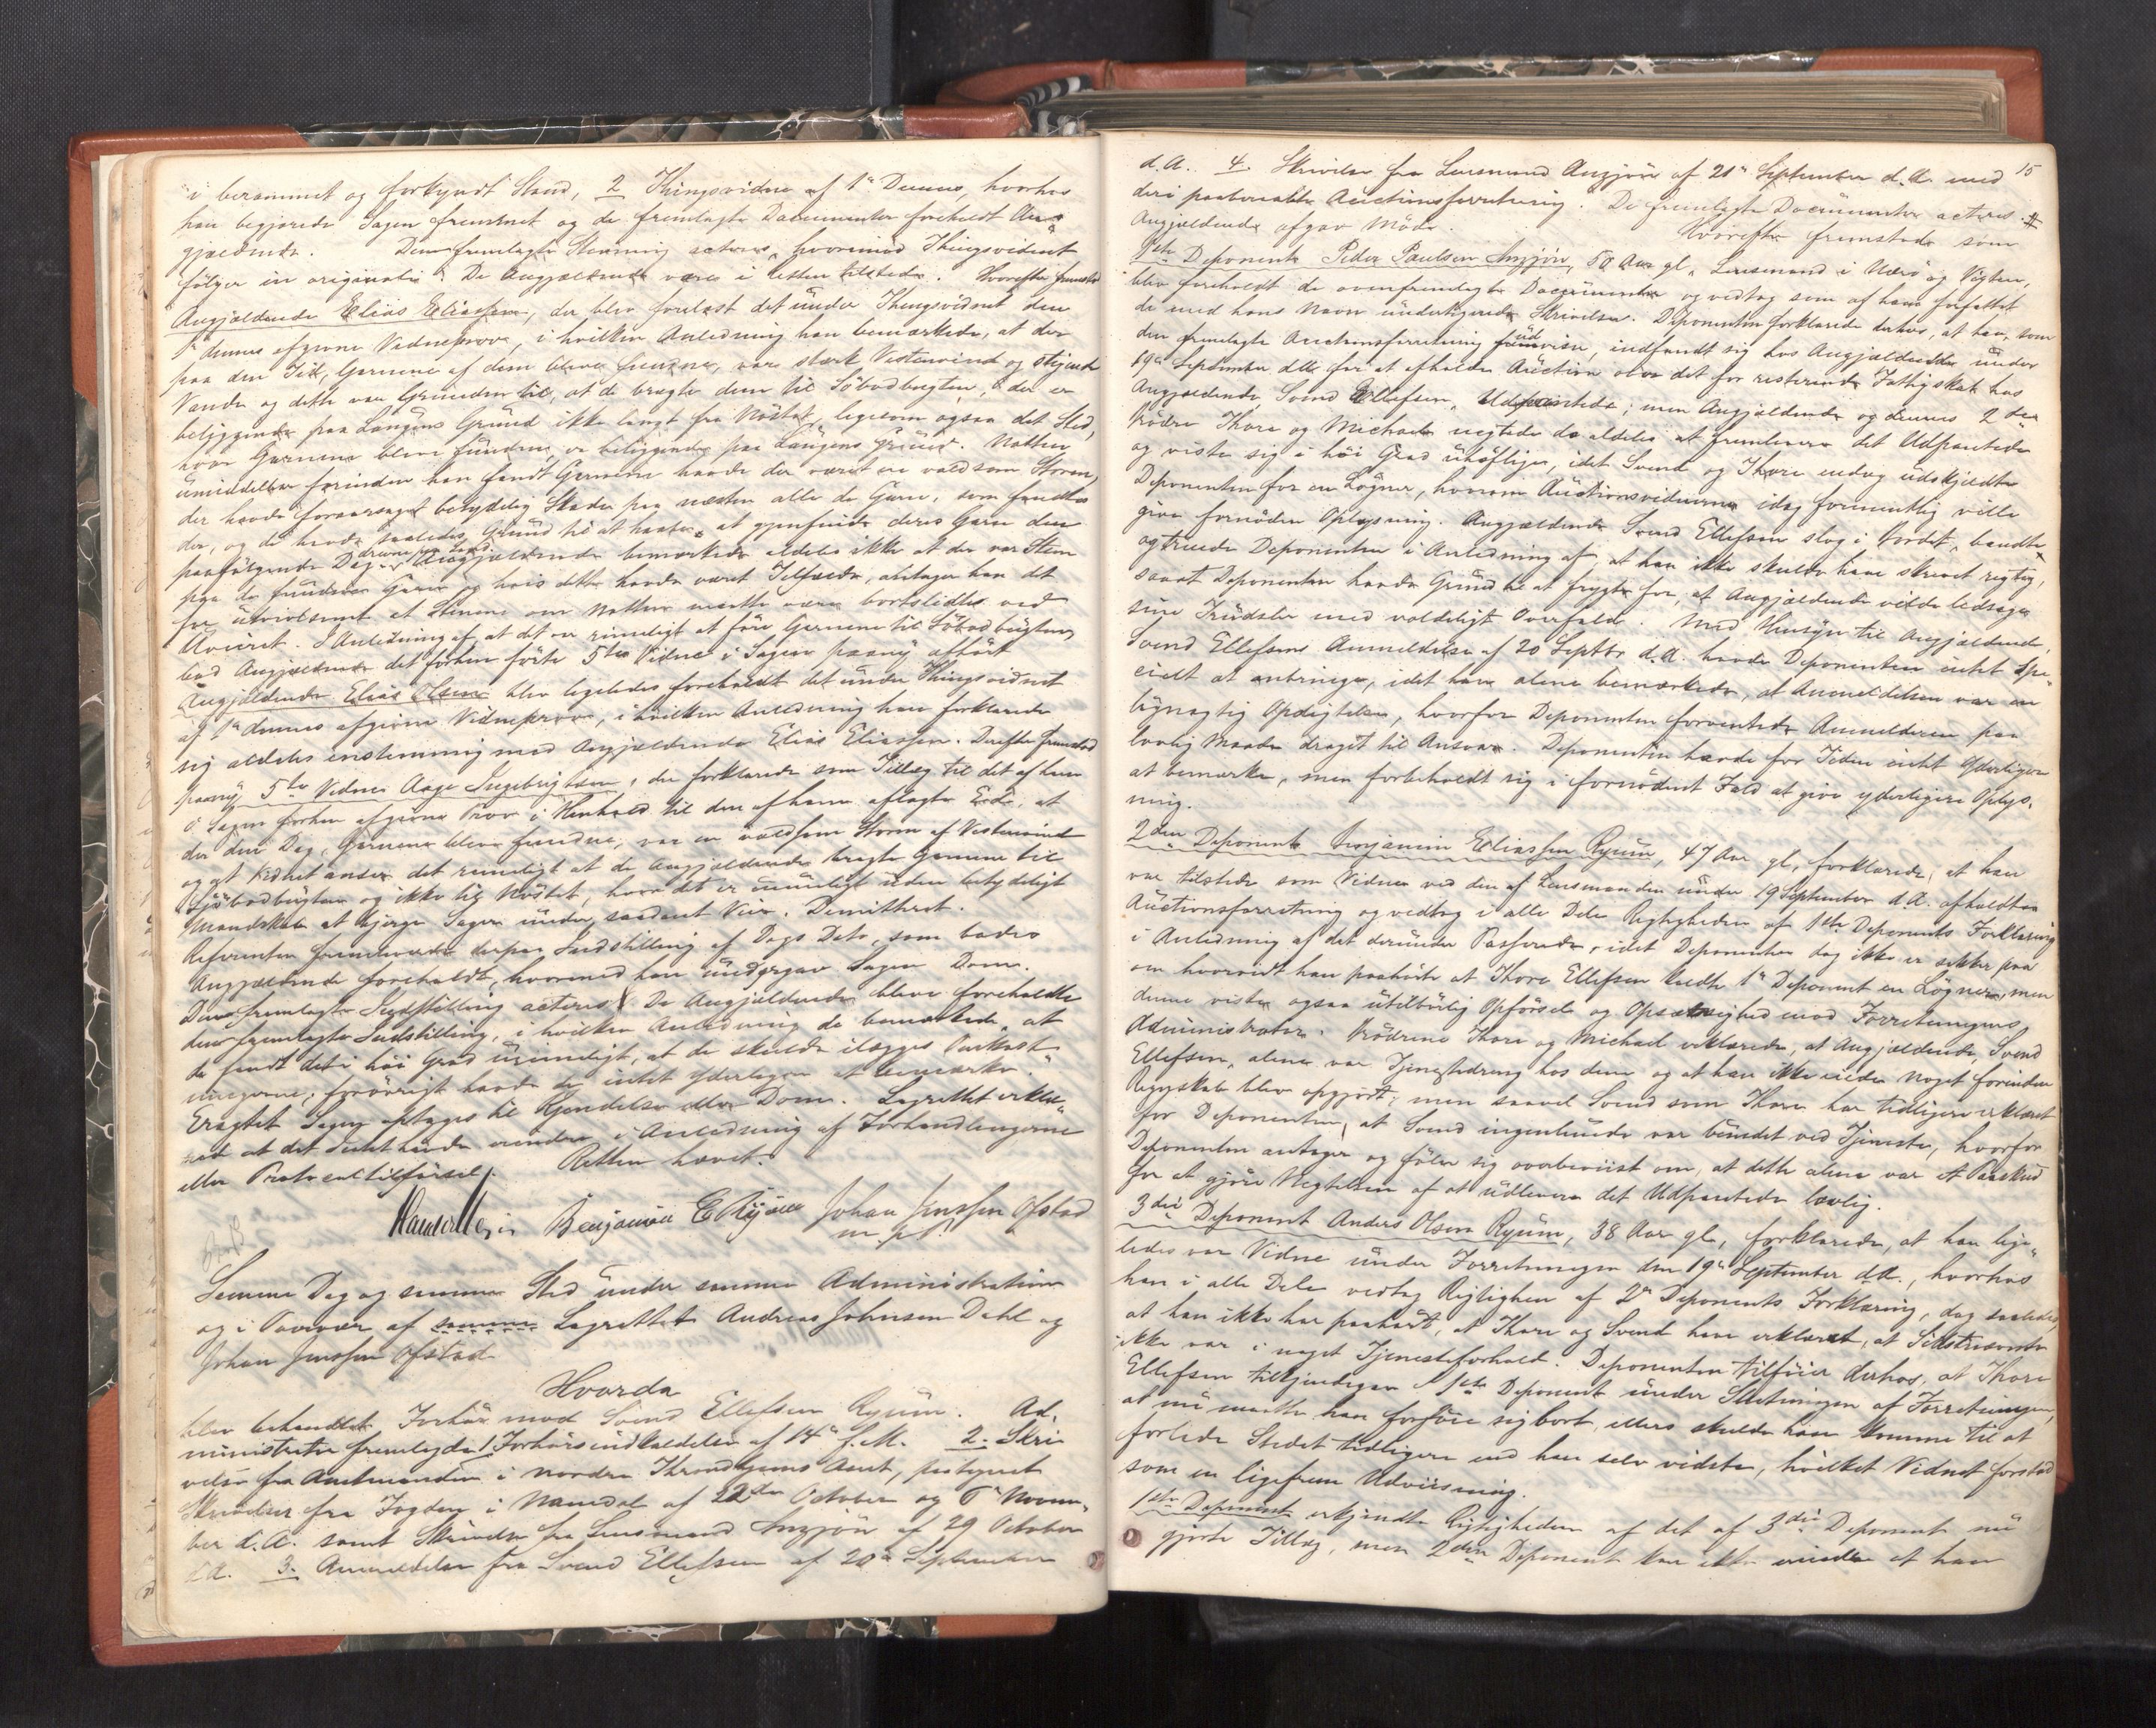 i berammet og forkyndt Stand, 2 Thingsvidne af 1ste Dennes, hvorhos
han begjærede Sagen fremmet og de fremlagte Documenter foreholdt An-
gjældende. Den fremlagte Stevning acteres, hvorimod Thingsvidnet
følger in originalis. De Angjældende vare i Retten tilstede. Hvorefter fremstod
Angjældende Elias Eliassen, der blev forelæst det under Thingsvidnet den
1ste dennes afgivne Vidneprove, i hvilken Anledning han bemærkede, at der
paa den Tid, Garnene af dem bleve fundne, var stærk Vestenvind og stigende
Vande og dette var Grunden til, at de bragte dem til Söbodbugten, der er
beliggende paa Langens Grund ikke langt fra Nöstet, ligesom ogsaa det Sted,
hvor Garnene bleve fundne, er beliggende paa Langens Grund. Natten
umiddelbar forinden han fandt Garnene havde der været en voldsom Storm,
der havde foraarsaget betydelig Skade paa næsten alle de Garn, som fandtes
der, og de havde saaledes Grund til at haabe, at gjenfinde deres Garn den
paafølgende Dag drevne paa Land. Angjældende bemærkede aldeles ikke at der var Steen
paa de fundne Garn og hvis dette havde været Tilfælde, antager han det
for utvivlsomt at Stenene om Natten maatte være bortslidte ved
Uveiret. I Anledning af, at det er rimeligt at före Garnene til Söbodbugten,
bad Angjældende det forhen förte 5te Vidne i Sagen paany afhört.
Angjældende Elias Olsen blev ligeledes foreholdt det under Thingsvidnet
af 1ste dennes afgivne Vidneprove, i hvilken Anledning han forklarede
sig aldeles enstemmig med Angjældende Elias Eliassen. Derefter fremstod
paany 5te Vidne Aage Ingebrigtsen, der forklarede som Tillæg til det af ham
i Sagen forhen afgivne Prov i Henhold til den af ham aflagte Eed, at
der den Dag, Garnene bleve fundne, var en voldsom Storm af Vestenvind
og at Vidnet anser det rimeligt at de Angjældende bragte Garnene til
Sjöbodbugten og ikke til Nöstet, hvor det er umuligt uden betydeligt
Mandskab at bjerge Sager under saadant Veir. Demitteret.
Referenten fremleverede derpaa Indstilling af Dags Dato, som bedes
Angjældende foreholdt, hvormed han undergav Sagen Dom.
Den fremlagte Indstilling acteres. De Angjældende bleve foreholdte
den fremlagte Indstilling, i hvilken Anledning de bemærkede, at
de fandt det i höi Grad urimeligt, at de skulde ilægges Omkost-
ningerne; forövrigt havde de intet yderligere at bemærke.
Eragtet Sagen optages til Kjendelse eller Dom. Lagrettet erklæ-
rede at det Intet havde erindre i Anledning af Forhandlingerne
eller Protocoltilförsel. Retten hævet.
Benjamin E Ryum Johan Jenssen Ofstad
m. p. P.
Samme Dag og samme Sted under samme Administration
og i Overvær af samme Lagrettet Andreas Johnsen Dahl og
Johan Jenssen Ofstad
Hvorda
blev behandlet Forhör mod Svend Ellefsen Ryum. Ad-
ministrator fremlagde 1 Forhörsindkaldelse af 14de f. M. 2. Skri-
velse fra Amtmanden i Nordre Throndhjems Amt, paategnet
Skrivelser fra Fogden i Namdal af 22de October og 6te Novem-
ber d. A. samt Skrivelse fra Lensmand Anzjön af 29 October
d. A. 3. Anmeldelse fra Svend Ellefsen af 20de September
15
d. A. 4. Skrivelse fra Lensmand Anzjön af 21de September d. A. med
deri paaberaabte Auctionsforretning. De fremlagte Documenter acteres.
Angjældende afgav Möde. Hvorefter fremstod som
1ste Deponent Peder Paulsen Anzjön, 50 Aar gl., Lensmand i Nærö og Vigten,
blev foreholdt de ovenfremlagte Documenter og vedtog som af ham forfattet
de med hans Navn undertegnede Skrivelser. Deponenten forklarede derhos, at han, som
den fremlagte Auctionsforretning udviser, indfandt sig hos Angjældende under
19de September d. A. for at afholde Auction over det for resterende Fattigskat hos
Angjældende Svend Ellefsen Udpantede; men Angjældende og dennes 2de
Brödre Thore og Michael negtede da aldeles at fremlevere det Udpantede
og viste sig i höi Grad uhöflige, idet Svend og Thore endog udskjeldte
Deponenten for en Lögner, hvorom Auctionsvidnerne idag formentlig ville
give fornöden Oplysning. Angjældende Svend Ellefsen slog i Bordet, bandte
og truede Deponenten i Anledning af, at han ikke skulde have skrevet rigtig,
samt Deponenten havde Grund til at frygte for, at Angjældende vilde ledsage
sine Trudsler med voldeligt Overfald. Med Hensyn til Angjældende
Svend Ellefsens Anmeldelse af 20 Septbr. d. A. havde Deponenten intet spe-
cielt at anbringe, idet han alene bemærkede, at Anmeldelsen var en
lögnagtig Opdigtelse, hvorfor Deponenten forventede Anmelderen paa
lovlig Maade draget til Ansvar. Deponenten havde for Tiden intet Yderligere
at bemærke, men forbeholdt sig i fornödent Fald at give yderligere Oplys-
ning.
2den Deponent Benjamin Eliassen Ryum, 47 Aar gl., forklarede, at han
var tilstede som Vidne ved den af Lensmanden under 19 September d. A. afholdte
Auctionsforretning og vedtog i alle Dele Rigtigheden af 1ste Deponents Forklaring
i Anledning af det derunder Passerede, idet Deponenten dog ikke er sikker paa
om hvorvidt han paahörte at Thore Ellefsen kaldte 1ste Deponent en Lögner, men
denne viste ogsaa utilbörlig Opförsel og Opsætsighed mod Forretningens
Administrator. Brödrene Thore og Michael erklærede, at Angjældende, Svend
Ellefsen, alene var Tjenestedreng hos dem og at han ikke eiede Noget forinden
Regnskab blev opgjort; men saavel Svend som Thore har tidligere erklæret
for Deponenten, at Svend ingenlunde var bundet ved Tjeneste, hvorfor
Deponenten antager og föler sig overbeviist om, at dette alene var et Paaskud
for at gjöre Negtelsen af at udlevere det Udpantede lovlig.
3die Deponent Anders Olsen Ryum, 38 Aar gl., forklarede, at han lige-
ledes var Vidne under Forretningen den 19de September d. A., hvorhos
han i alle Dele vedtog Rigtigheden af 2den Deponents Forklaring, dog saaledes,
at han ikke har paahört, at Thore og Svend have erklæret, at Sidstnævnte
ikke var i noget Tjenesteforhold. Deponenten tilföier derhos, at Thore
Ellefsen tilkjendegav 1ste Deponent under Slutningen af Forretningen,
at nu maatte han forföie sig bort, ellers skulde han komme til at
forlade Stedet tidligere end han selv vidste, hvilket Vidnet forstod
som en ligefrem Udviisning.
1ste Deponent erkjendte Rigtigheden af det af 3die Deponent nu
gjorte Tillæg, men 2den Deponent kan ikke erindre at han